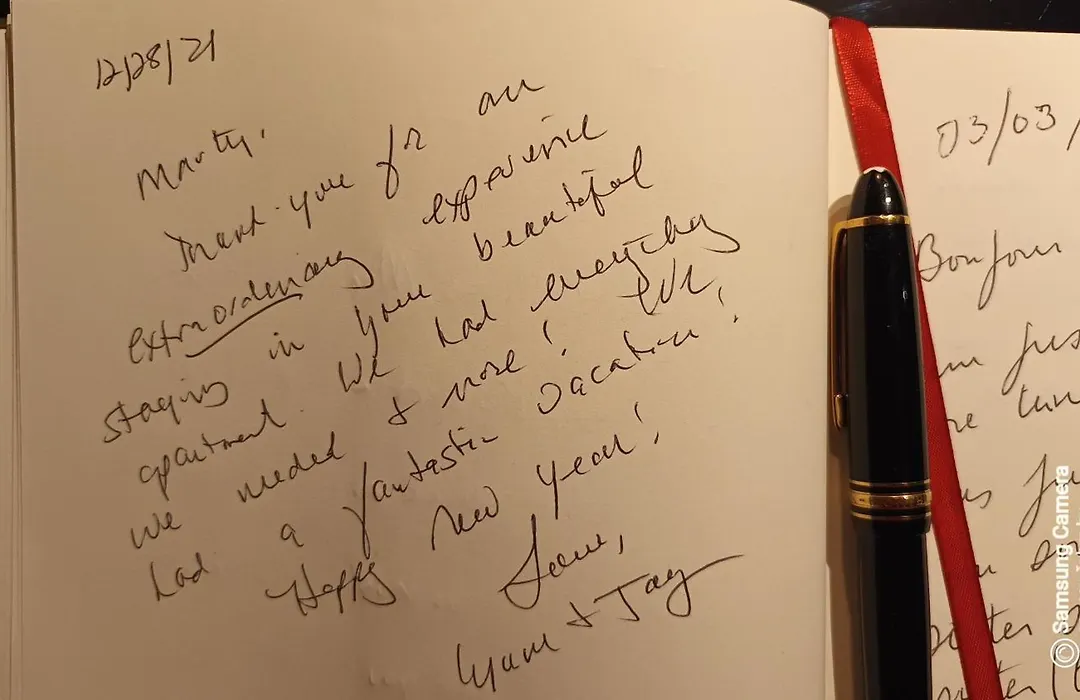 12/28/21
Marty,
Thank you for an
extraordinary experience
staying in your beautiful
apartment. We had everything
we needed & more! We
had a fantastic vacation!
Happy New Year!
Love,
& Jay
03/03/
Bonjour
© Samsung Camera